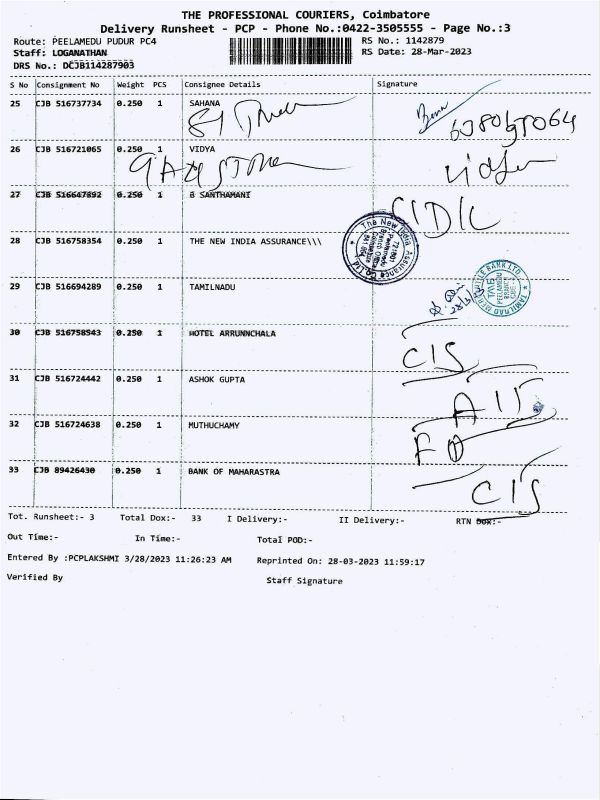 THE PROFESSIONAL COURIERS, Coimbatore
Delivery Runsheet - PCP - Phone No.:0422-3505555 - Page No.:3
Route: PEELAMEDU PUDUR PC4
RS No.: 1142879
Staff: LOGANATHAN
RS Date: 28-Mar-2023
DRS No.: DCJB114287903
S No Consignment No Weight PCS Consignee Details Signature
25 CJB 516737734 0.250 1 SAHANA
26 CJB 516721065 0.250 1 VIDYA
Vidya
27 CJB 516647692 0.250 1 B SANTHAMANI
28 CJB 516758354 0.250 1 THE NEW INDIA ASSURANCE\\\
The New India Assurance Co. Ltd.
29 CJB 516694289 0.250 1 TAMILNADU
28/3/23
30 CJB 516758543 0.250 1 HOTEL ARRUNNCHALA
CIS
31 CJB 516724442 0.250 1 ASHOK GUPTA
32 CJB 516724638 0.250 1 MUTHUCHAMY
33 CJB 89426430 0.250 1 BANK OF MAHARASTRA
CIS
Tot. Runsheet:- 3 Total Dox:- 33 I Delivery:- II Delivery:- RTN Dox:-
Out Time:- In Time:- Total POD:-
Entered By :PCPLAKSHMI 3/28/2023 11:26:23 AM Reprinted On: 28-03-2023 11:59:17
Verified By Staff Signature